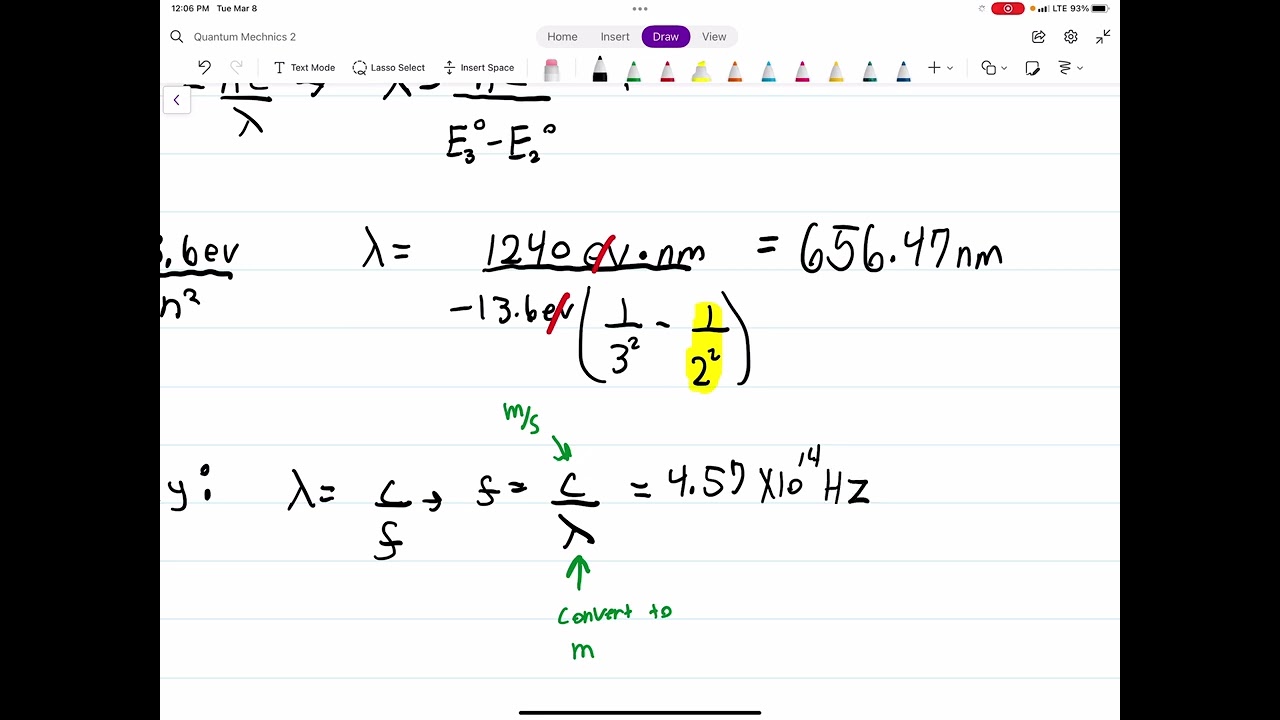 12:06 PM Tue Mar 8
LTE 93%
Quantum Mechnics 2
Home Insert Draw View
Text Mode Lasso Select Insert Space
λ → λ =
E₃° - E₂°
.6 ev
n²
λ = 1240 ev·nm = 656.47 nm
-13.6 ev (1/3² - 1/2²)
m/s
y: λ = c/f → f = c/λ = 4.57 x10¹⁴ Hz
convert to
m